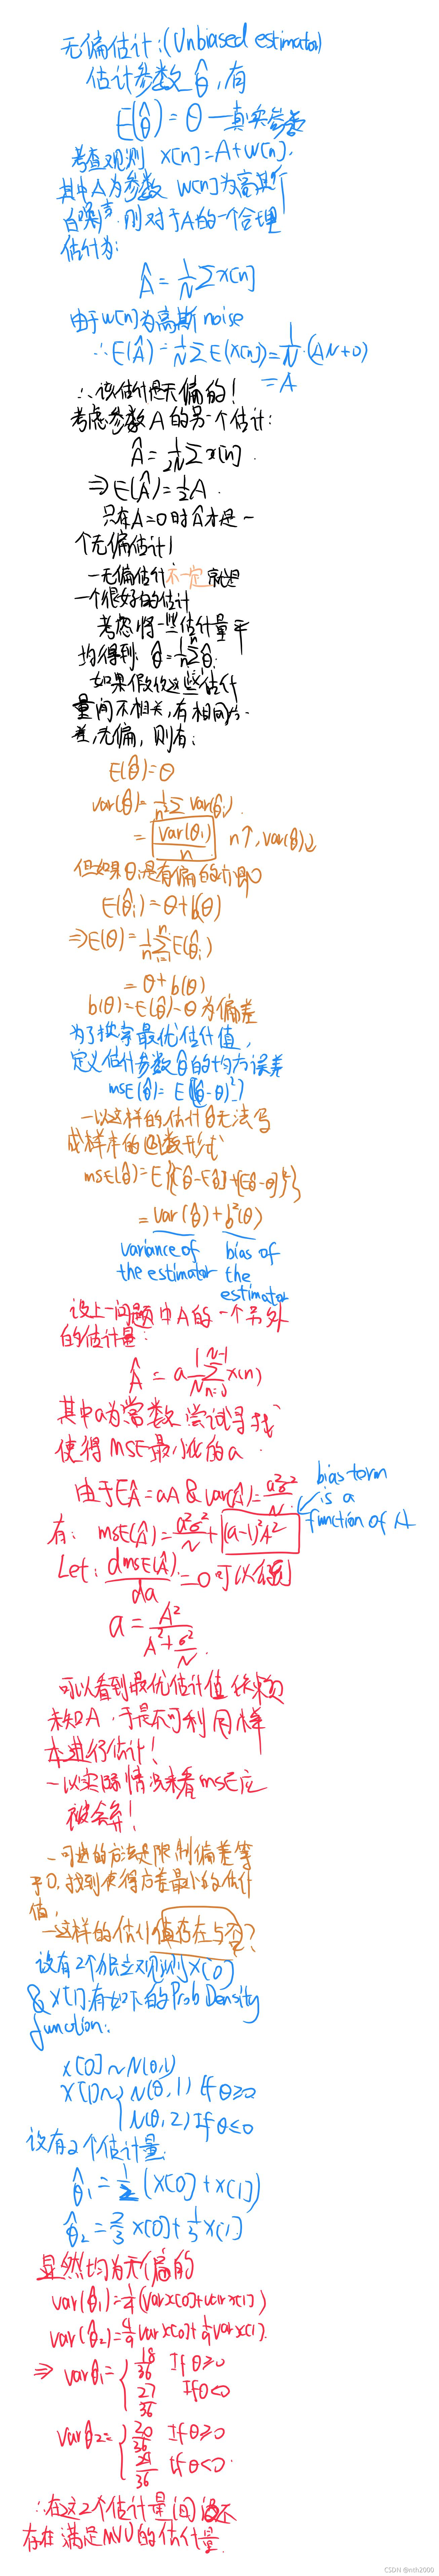 无偏估计:(Unbiased estimator)
估计参数 θ̂,有
E(θ̂) = θ —真实参数
考查观测 x[n]=A+w[n].
其中A为参数 w[n]为高斯
白噪声.则对于A的一个合理
估计为:
Â = 1/N Σ x[n]
由于w[n]为高斯 noise
∴E(Â) = 1/N Σ E(x[n]) = 1/N · (AN+0)
= A
∴该估计是无偏的!
考虑参数A的另一个估计:
Â = 1/2N Σ x[n].
⇒E(Â) = 1/2 A.
只有A=0时Â才是一
个无偏估计!
—无偏估计不一定就是
一个很好的估计
考虑将一些估计量平
均得到: θ̂ = 1/n Σ θ̂
如果假设这些估计
量间不相关,有相同方
差,无偏, 则有:
E(θ̂) = θ
var(θ̂) = 1/n² Σ var(θ̂i).
= var(θi)/n n↑, var(θ̂)↓
但如果θi是有偏的
E(θ̂i) = θ+b(θ)
⇒E(θ) = 1/n Σ E(θ̂i)
= θ+b(θ)
b(θ) = E(θ̂)-θ 为偏差
为了找寻最优估计值,
定义估计参数θ̂的均方误差
mse(θ̂) = E((θ̂-θ)²)
—以这样的估计θ无法写
成样本的函数形式
mse(θ̂) = E{([θ̂-Eθ̂]+[Eθ̂-θ])²}
= var(θ̂)+b²(θ)
variance of the estimator
bias of the estimator
设上一问题中A的一个另外
的估计量:
Â = a 1/N Σ x(n)
其中a为常数 尝试寻找
使得MSE最小化的a.
由于EÂ = aA & var(Â) = a²σ²/N
bias term
is a
function of A
有: mse(Â) = a²σ²/N + (a-1)²A²
Let: dmse(Â)/da = 0 可以得到
a = A²/(A²+σ²/N).
可以看到最优估计值依赖
未知A,于是不可利用样
本进行估计!
—以实际情况来看mse应
被舍弃!
—可选的方法是限制偏差等
于0,找到使得方差最小的估计
值,
—这样的估计值存在与否?
设有2个独立观测X[0]
& X[1]有如下的Prob Density
function:
x[0]~N(θ,1)
x[1]~{N(θ,1) if θ≥0
N(θ,2) If θ≤0
设有2个估计量:
θ̂1 = 1/2 (x[0]+x[1])
θ̂2 = 2/3 x[0]+1/3 x[1]
显然均为无偏的
var(θ̂1) = 1/4 (var x[0]+var x[1])
var(θ̂2) = 4/9 var x[0]+1/9 var x[1].
⇒ varθ̂1 = {18/36 If θ≥0
27/36 If θ<0
varθ̂2 = {20/36 if θ≥0
24/36 if θ<0.
∴在这2个估计量间
存在满足MVU的估计量.
CSDN @nth2000